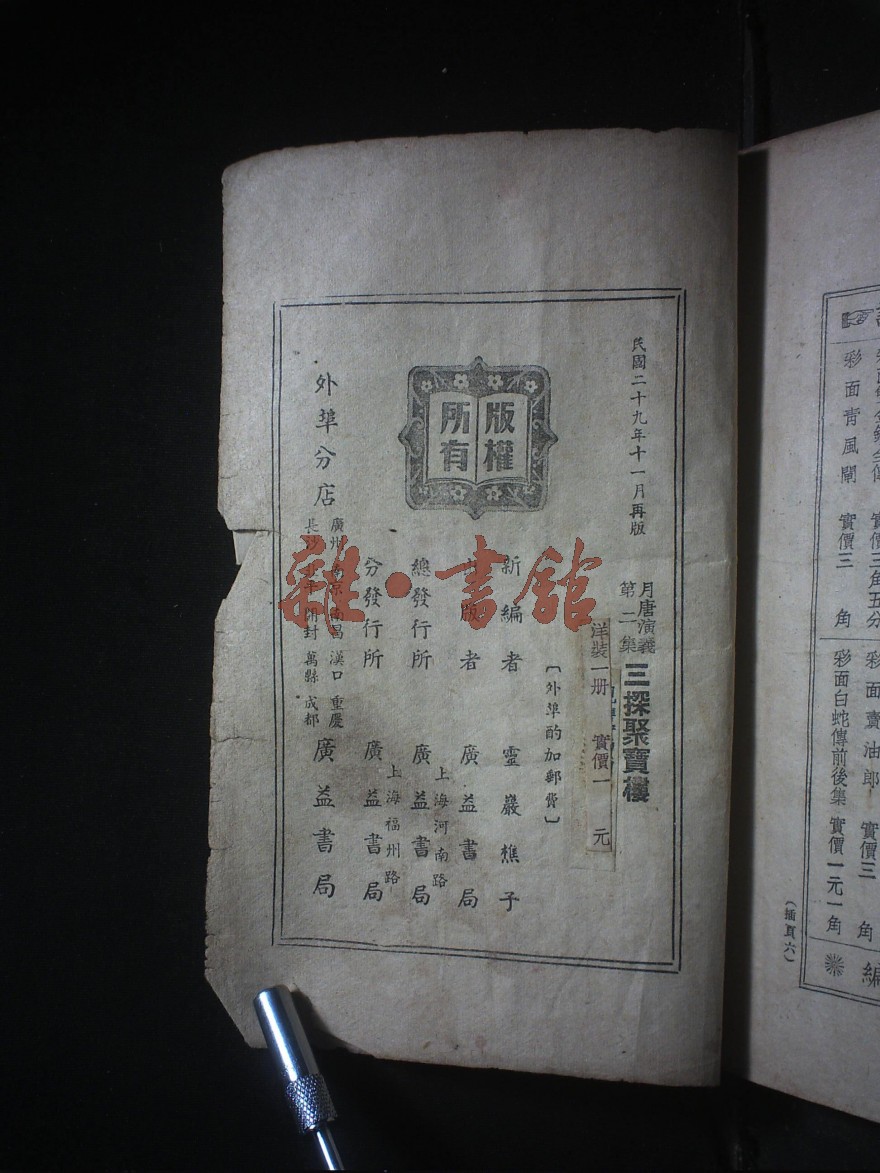 民國二十九年十一月再版
月唐演義
第二集
三探聚寶樓
洋裝一册 實價一元
〔外埠酌加郵費〕
版權
所有
新編者 靈巖樵子
出版者 廣益書局
總發行所 上海河南路 廣益書局
分發行所 上海福州路 廣益書局
外埠分店
廣州 南京 南昌 漢口 重慶
長沙 北平 開封 萬縣 成都
廣益書局
雜·書館
彩面青風閘 實價三角
實價三角五分
彩面賣油郎 實價三角
彩面白蛇傳前後集 實價一元一角
編
(插頁六)